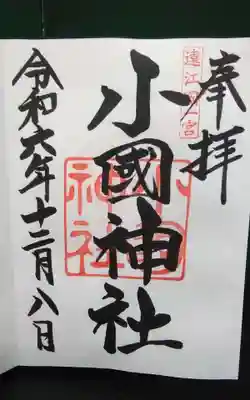 奉拝
遠江國一宮
小國神社
小國神社
令和六年十二月八日